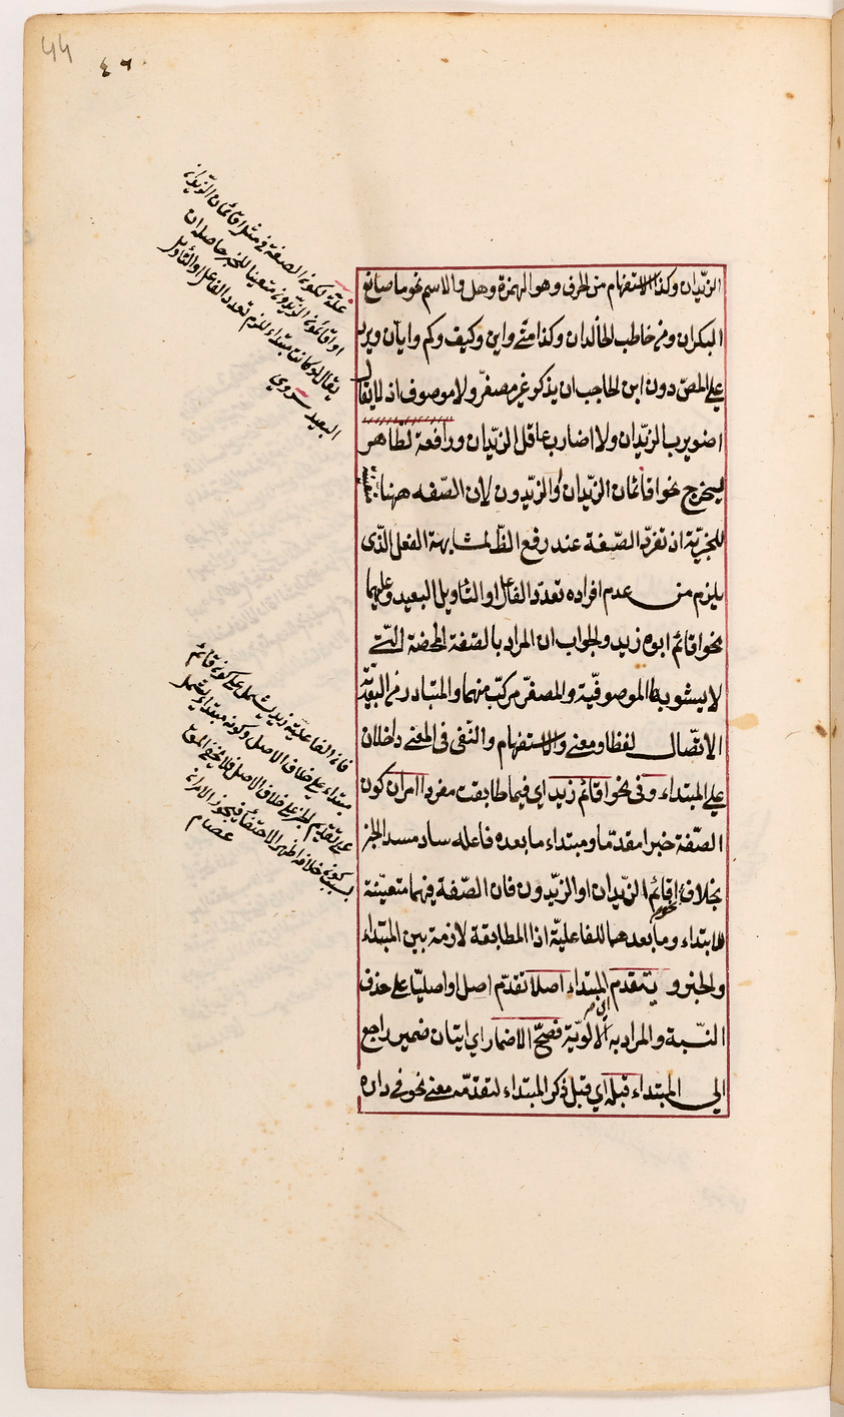 44
٤٦
الزيّدان وكذا الاستفهام من الحرف وهو الهمزة وهل والاسم نحو ما صانع
البكران ومن خاطب الخالدان وكذا متى واين وكيف وكم وايان ويرد
على المصّ دون ابن الحاجب ان يذكر غير مصغّر ولا موصوف اذ لا يقال
اضويرب الزيّدان ولا اضارب عاقل الزيّدان ورافعة لظاهر
ليخرج نحو اقائمان الزيّدان او الزيّدون لان الصّفه ههنا متعينة
للخبريّة اذ تفرد الصّفة عند رفع الظّ لمشابهة الفعل الذّى
يلزم من عدم افراده تعدّد الفاعل او التّاويل البعيد وعليهما
نحو اقائم ابوه زيد والجواب ان المراد بالصّفة المحضة التّے
لا يشوبها الموصوفيّة والمصغّر مركّب منهما والمتبادر من البعديّة
الاتّصال لفظا ومعنى والاستفهام والنّفى فى المعنى داخلان
على المبتداء وفى نحو اقائم زيد اى فيما طابقت مفردا امران كون
الصّفة خبرا مقدّما ومبتداء ما بعده فاعله ساد مسد الخبر
بخلاف اقائم الزيّدان او الزيّدون فان الصّفة فيهما متعيّنة
للابتداء وما بعدهما للفاعليّة اذ المطابقة لازمة بين المبتداء
والخبر و يتقدم المبتداء اصلا تقدّم اصل او اصليّا على حذف
النّسبة والمراد به الاولويّة فصحّ الاضمار اى اتيان ضمير راجع
الى المبتداء قبله اى قبل ذكر المبتداء لتقدّمه معنى نحو فى داره
علّة لكون الصفة فى مثل اقائمان الزيدان
او اقائمون الزيدون متعينا للخبر حاصله ان
يقال لو كانت مبتداء لزم تعدد الفاعل او التأويل
البعيد
فان الفاعليّة زيد يشتمل على كون قائم
مبتداء على خلاف الاصل وكونه مبتداء يشتمل
على تقديم الخبر على خلاف الاصل فلا يخفى
عصام